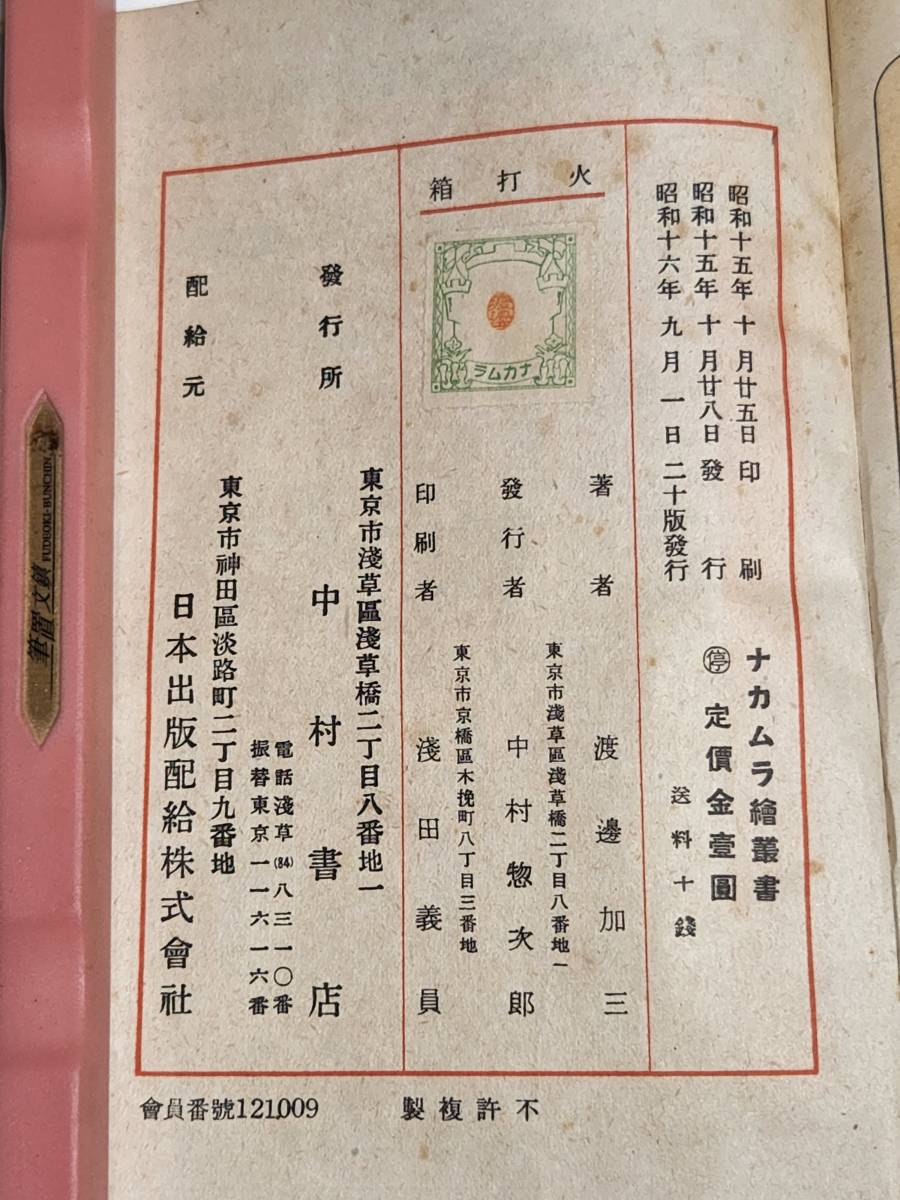 昭和十五年十月廿五日印刷
昭和十五年十月廿八日發行
昭和十六年九月一日二十版發行
ナカムラ繪叢書
㊡定價金壹圓
送料十錢
火打箱
ナカムラ
著者 渡邊加三
東京市淺草區淺草橋二丁目八番地一
發行者 中村惣次郎
東京市京橋區木挽町八丁目三番地
印刷者 淺田義員
東京市淺草區淺草橋二丁目八番地一
發行所 中村書店
電話淺草(84)八三一〇番
振替東京一一六一六番
東京市神田區淡路町二丁目九番地
配給元 日本出版配給株式會社
不許複製
會員番號121009
筆置文鎮
FUDEOKI-BUNCHIN